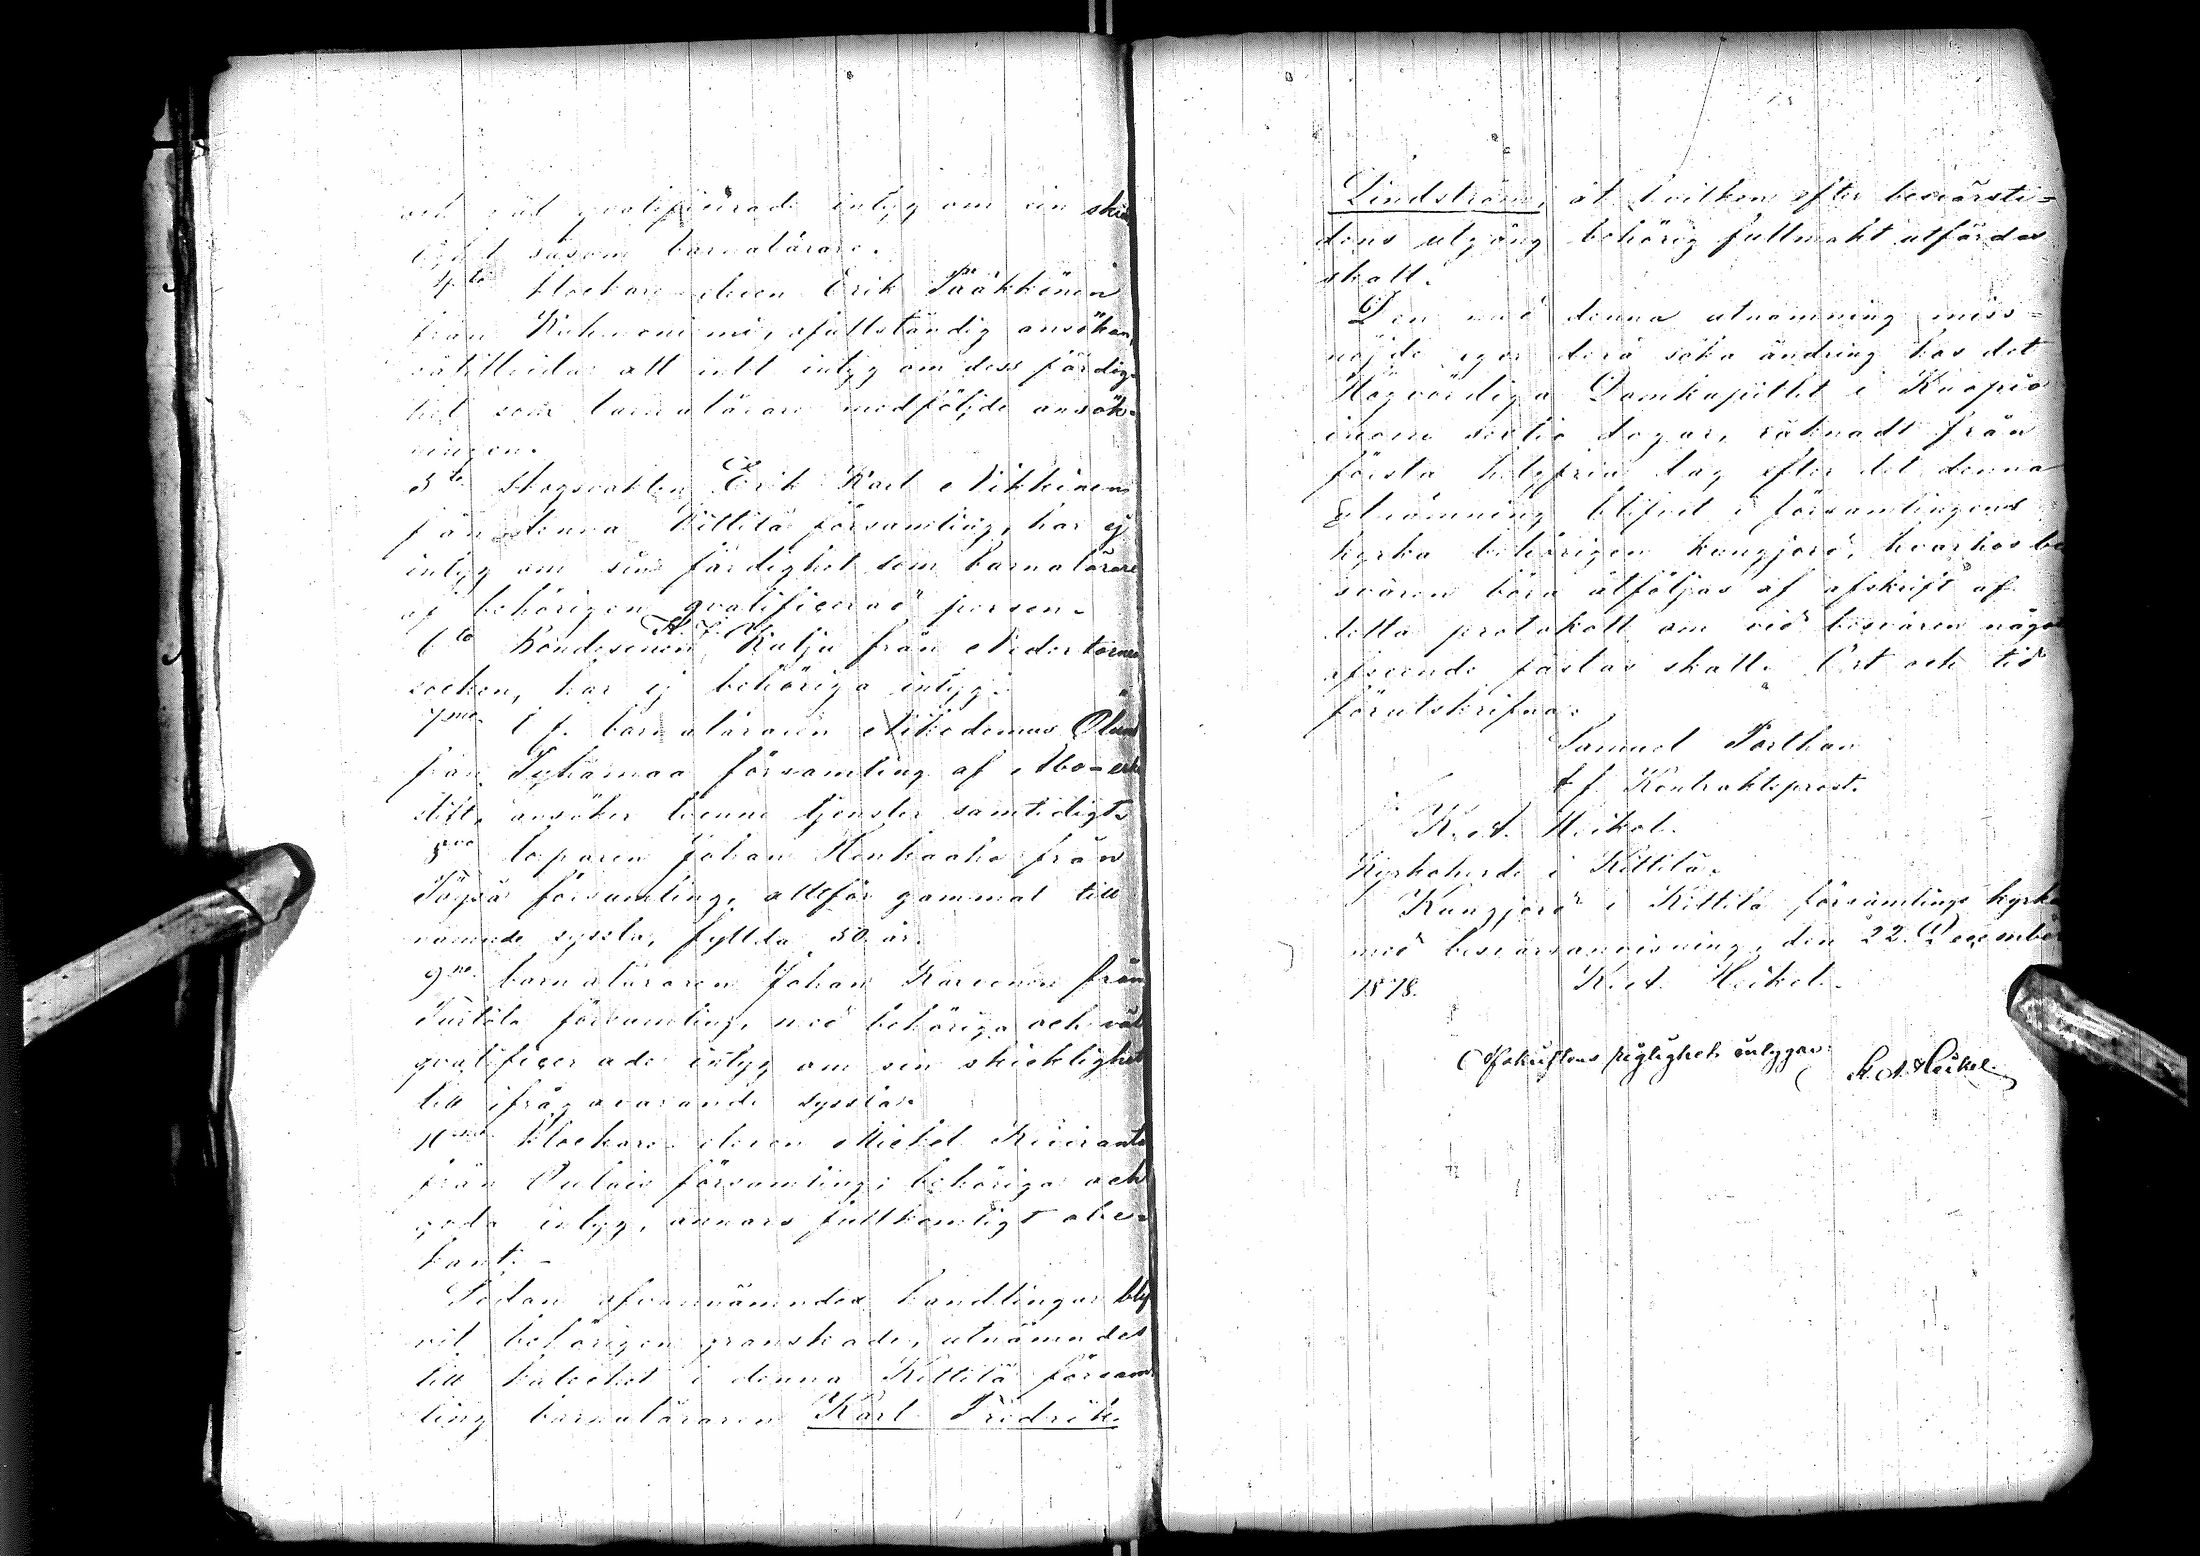 och väl qvalificerade intyg om sin skick
lighet såsom barnalärare.
4to klockare eleven Erik Pääkkönen
från Kuhmoniemi, ofullständig ansökan,
alldenstund att intet intyg om dess färdig-
het som barnalärare medföljde ansök-
ningen.
5te Skogsvakten Erik Karl Nikkinen
från denna Kittilä församling, har ej
intyg om sin färdighet som barnalärare
af behörigen qvalificerad person.
6to Bondesonen H. J. Kulju från Neder torneå
socken, har ej behöriga intyg.
7mo t. f. barnaläraren Nikodemus Ölund
från Pyhämaa församling af Åbo erke
stift, ansöker denne tjenster samtidigt.
8vo löparen Johan Honkaaho från
Töysä församling, alltför gammal till
nämnde syssla, fyllda 50 år.
9no barnaläraren Johan Karvonen från
Turtola församling, med behöriga och väl
qvalificerade intyg om sin skicklighet
till ifrågavarande syssla.
10mo klockare eleven Mickel Kiviranta
från Oulais församling; behöriga och
goda intyg, annars fullkomligt obe-
kant. -
Sedan ofvannämnda handlingar blif
vit behörigen granskade, utnämndes
till kateket i denna Kittilä försam
ling barnaläraren Karl Fredrik
Lindström, åt hvilken efter besvärsti-
dens utgång behörig fullmakt utfärdas
skall.
Den med denna utnämning miss-
nöjde eger derå söka ändring hos det
Högvördiga Domkapitlet i Kuopio
inom sextio dagar, räknadt från
första helgfria dag efter det denna
utnämning blifvit i församlingens
kyrka behörigen kungjord, hvarhos be
svären böra åtföljas af afskrift af
detta protokoll om vid besvären något
afseende fästas skall. Ort och tid
förutskrifna.
Samuel Porthan
t f. Kontraktsprost.
K. A. Heikel.
Kyrkoherde i Kittilä.
Kungjord i Kittilä församlings kyrka
med besvärsanvisning, den 22 December
1878. K. A. Heikel.
Afskriftens riglighet intygar:
K. A. Heikel.